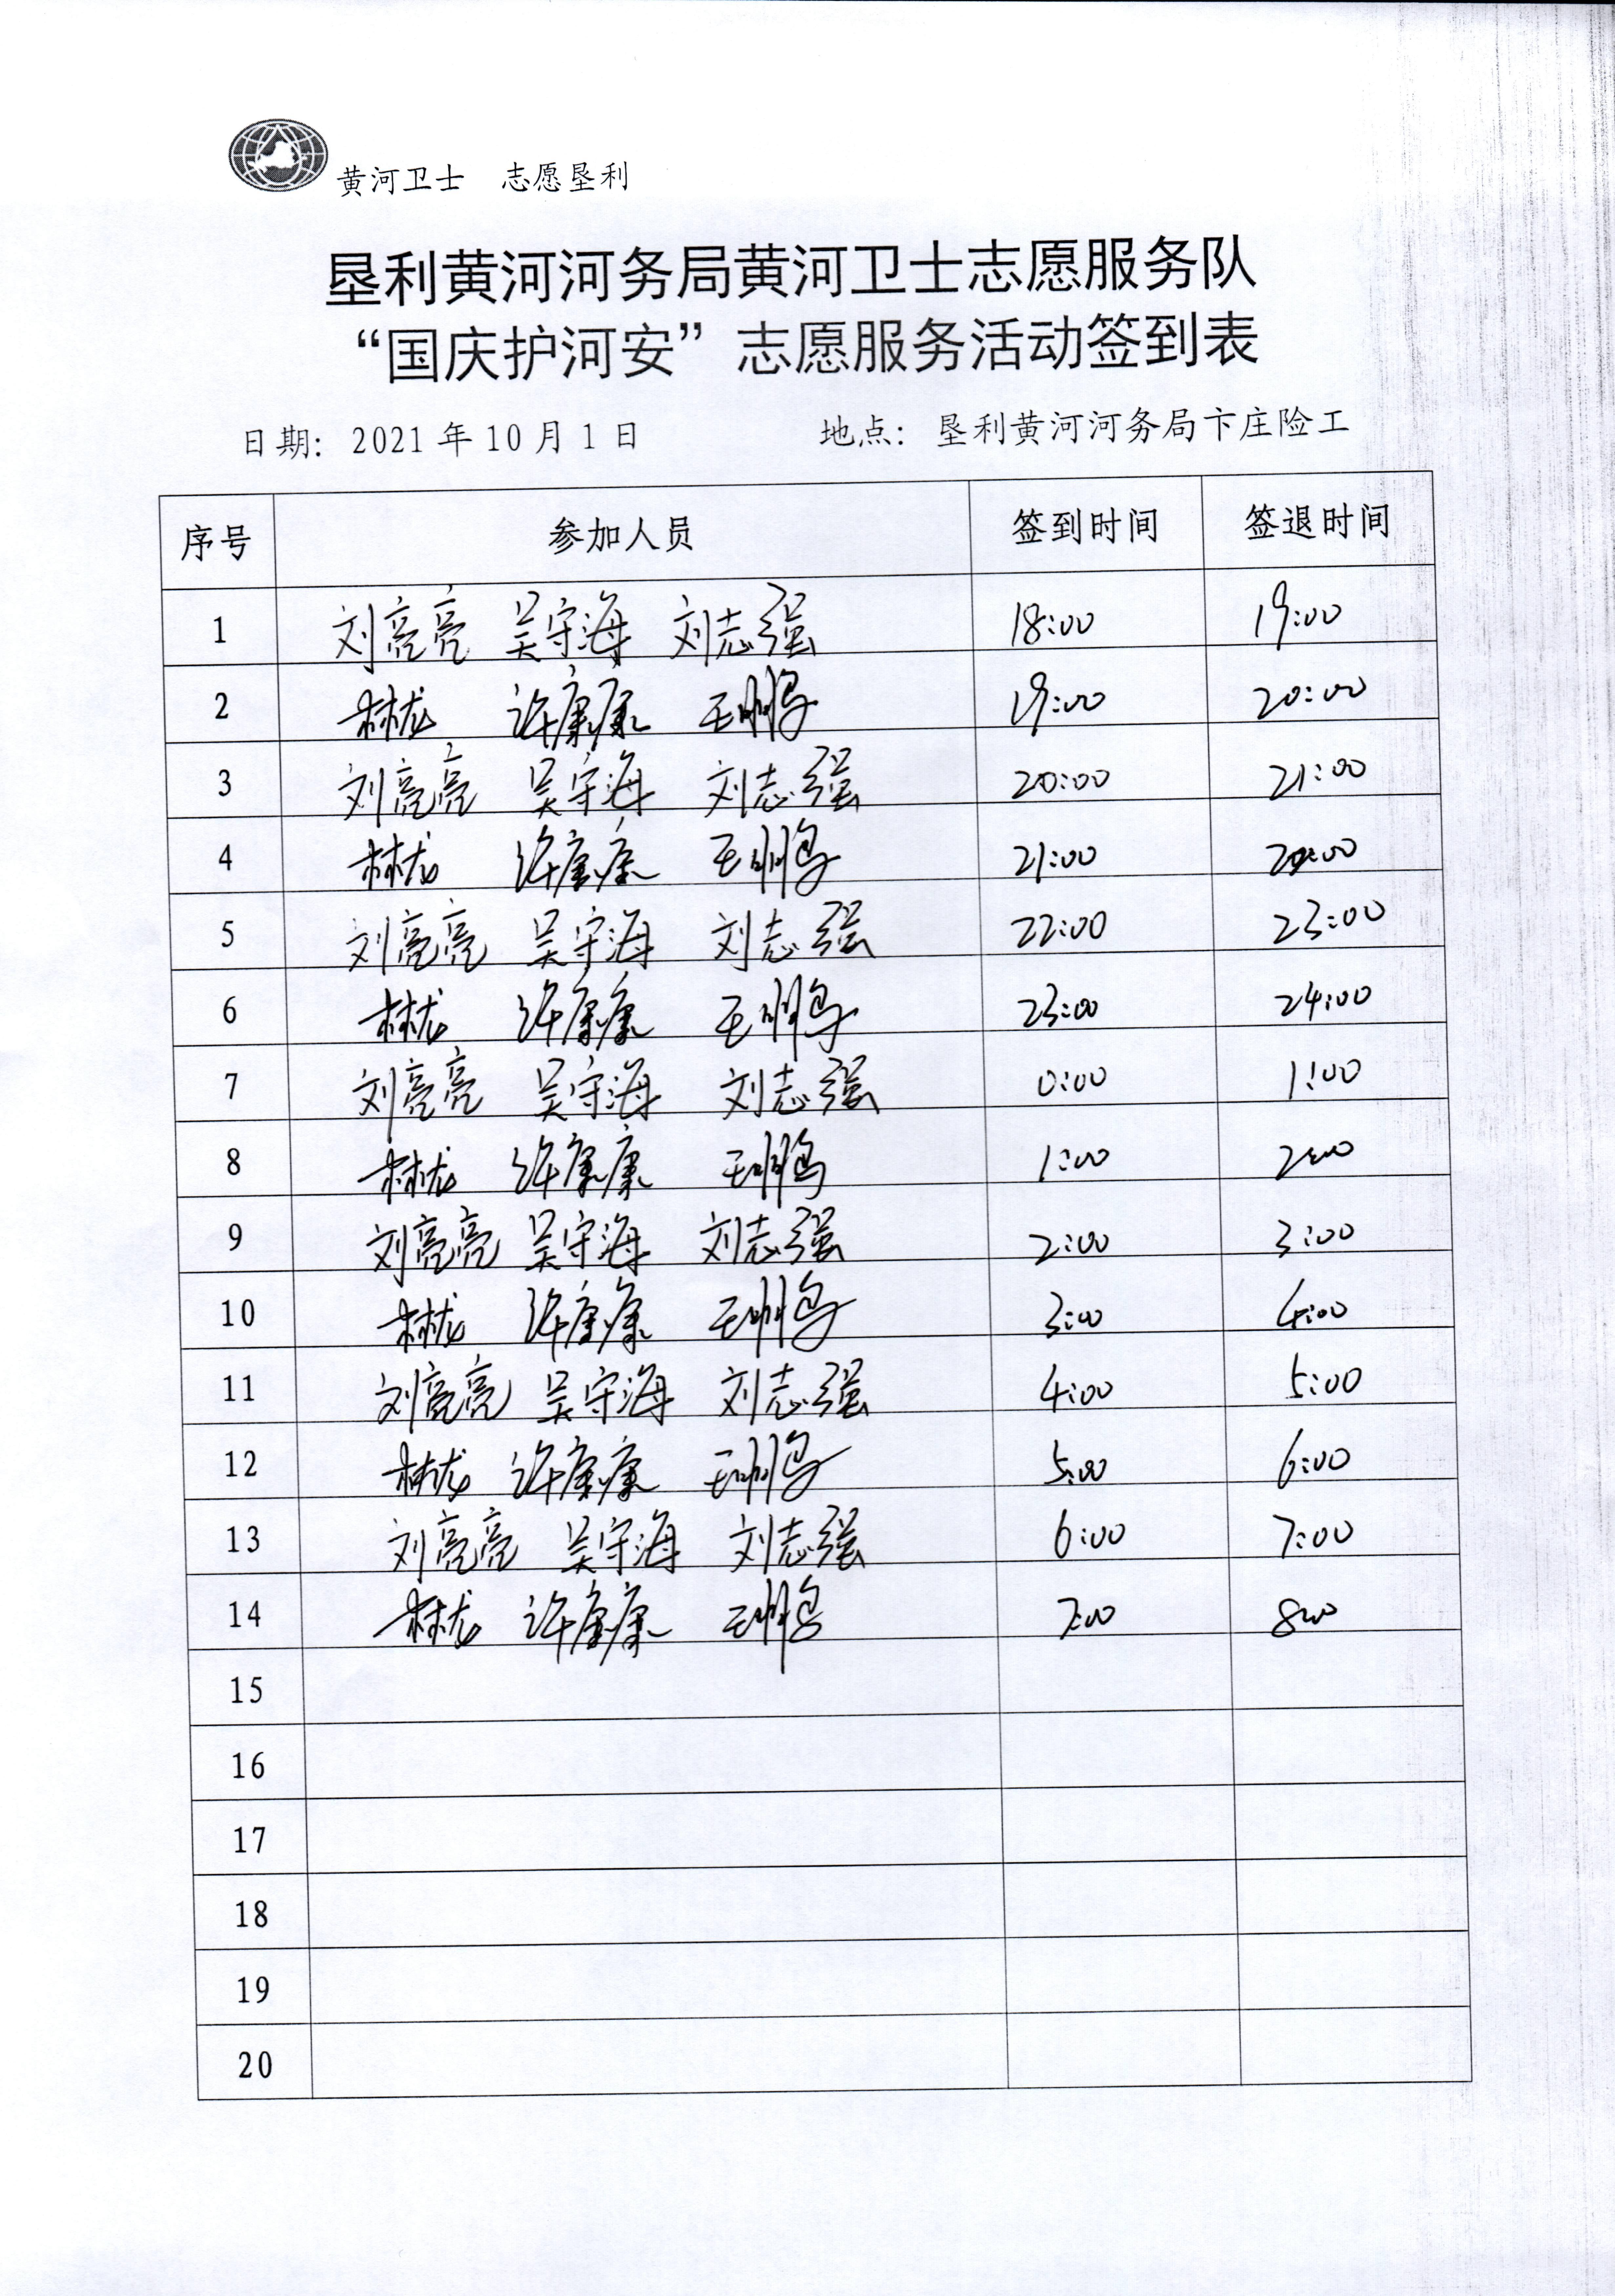 黄河卫士 志愿垦利
垦利黄河河务局黄河卫士志愿服务队
“国庆护河安”志愿服务活动签到表
日期: 2021年10月1日 地点: 垦利黄河河务局卞庄险工
序号 参加人员 签到时间 签退时间
1 刘亮亮 吴守海 刘志强 18:00 19:00
2 林龙 许康康 王鹏 19:00 20:00
3 刘亮亮 吴守海 刘志强 20:00 21:00
4 林龙 许康康 王鹏 21:00
5 刘亮亮 吴守海 刘志强 22:00 23:00
6 林龙 许康康 王鹏 23:00 24:00
7 刘亮亮 吴守海 刘志强 0:00 1:00
8 林龙 许康康 王鹏 1:00 2:00
9 刘亮亮 吴守海 刘志强 2:00 3:00
10 林龙 许康康 王鹏 3:00 4:00
11 刘亮亮 吴守海 刘志强 4:00 5:00
12 林龙 许康康 王鹏 5:00 6:00
13 刘亮亮 吴守海 刘志强 6:00 7:00
14 林龙 许康康 王鹏 7:00 8:00
15
16
17
18
19
20